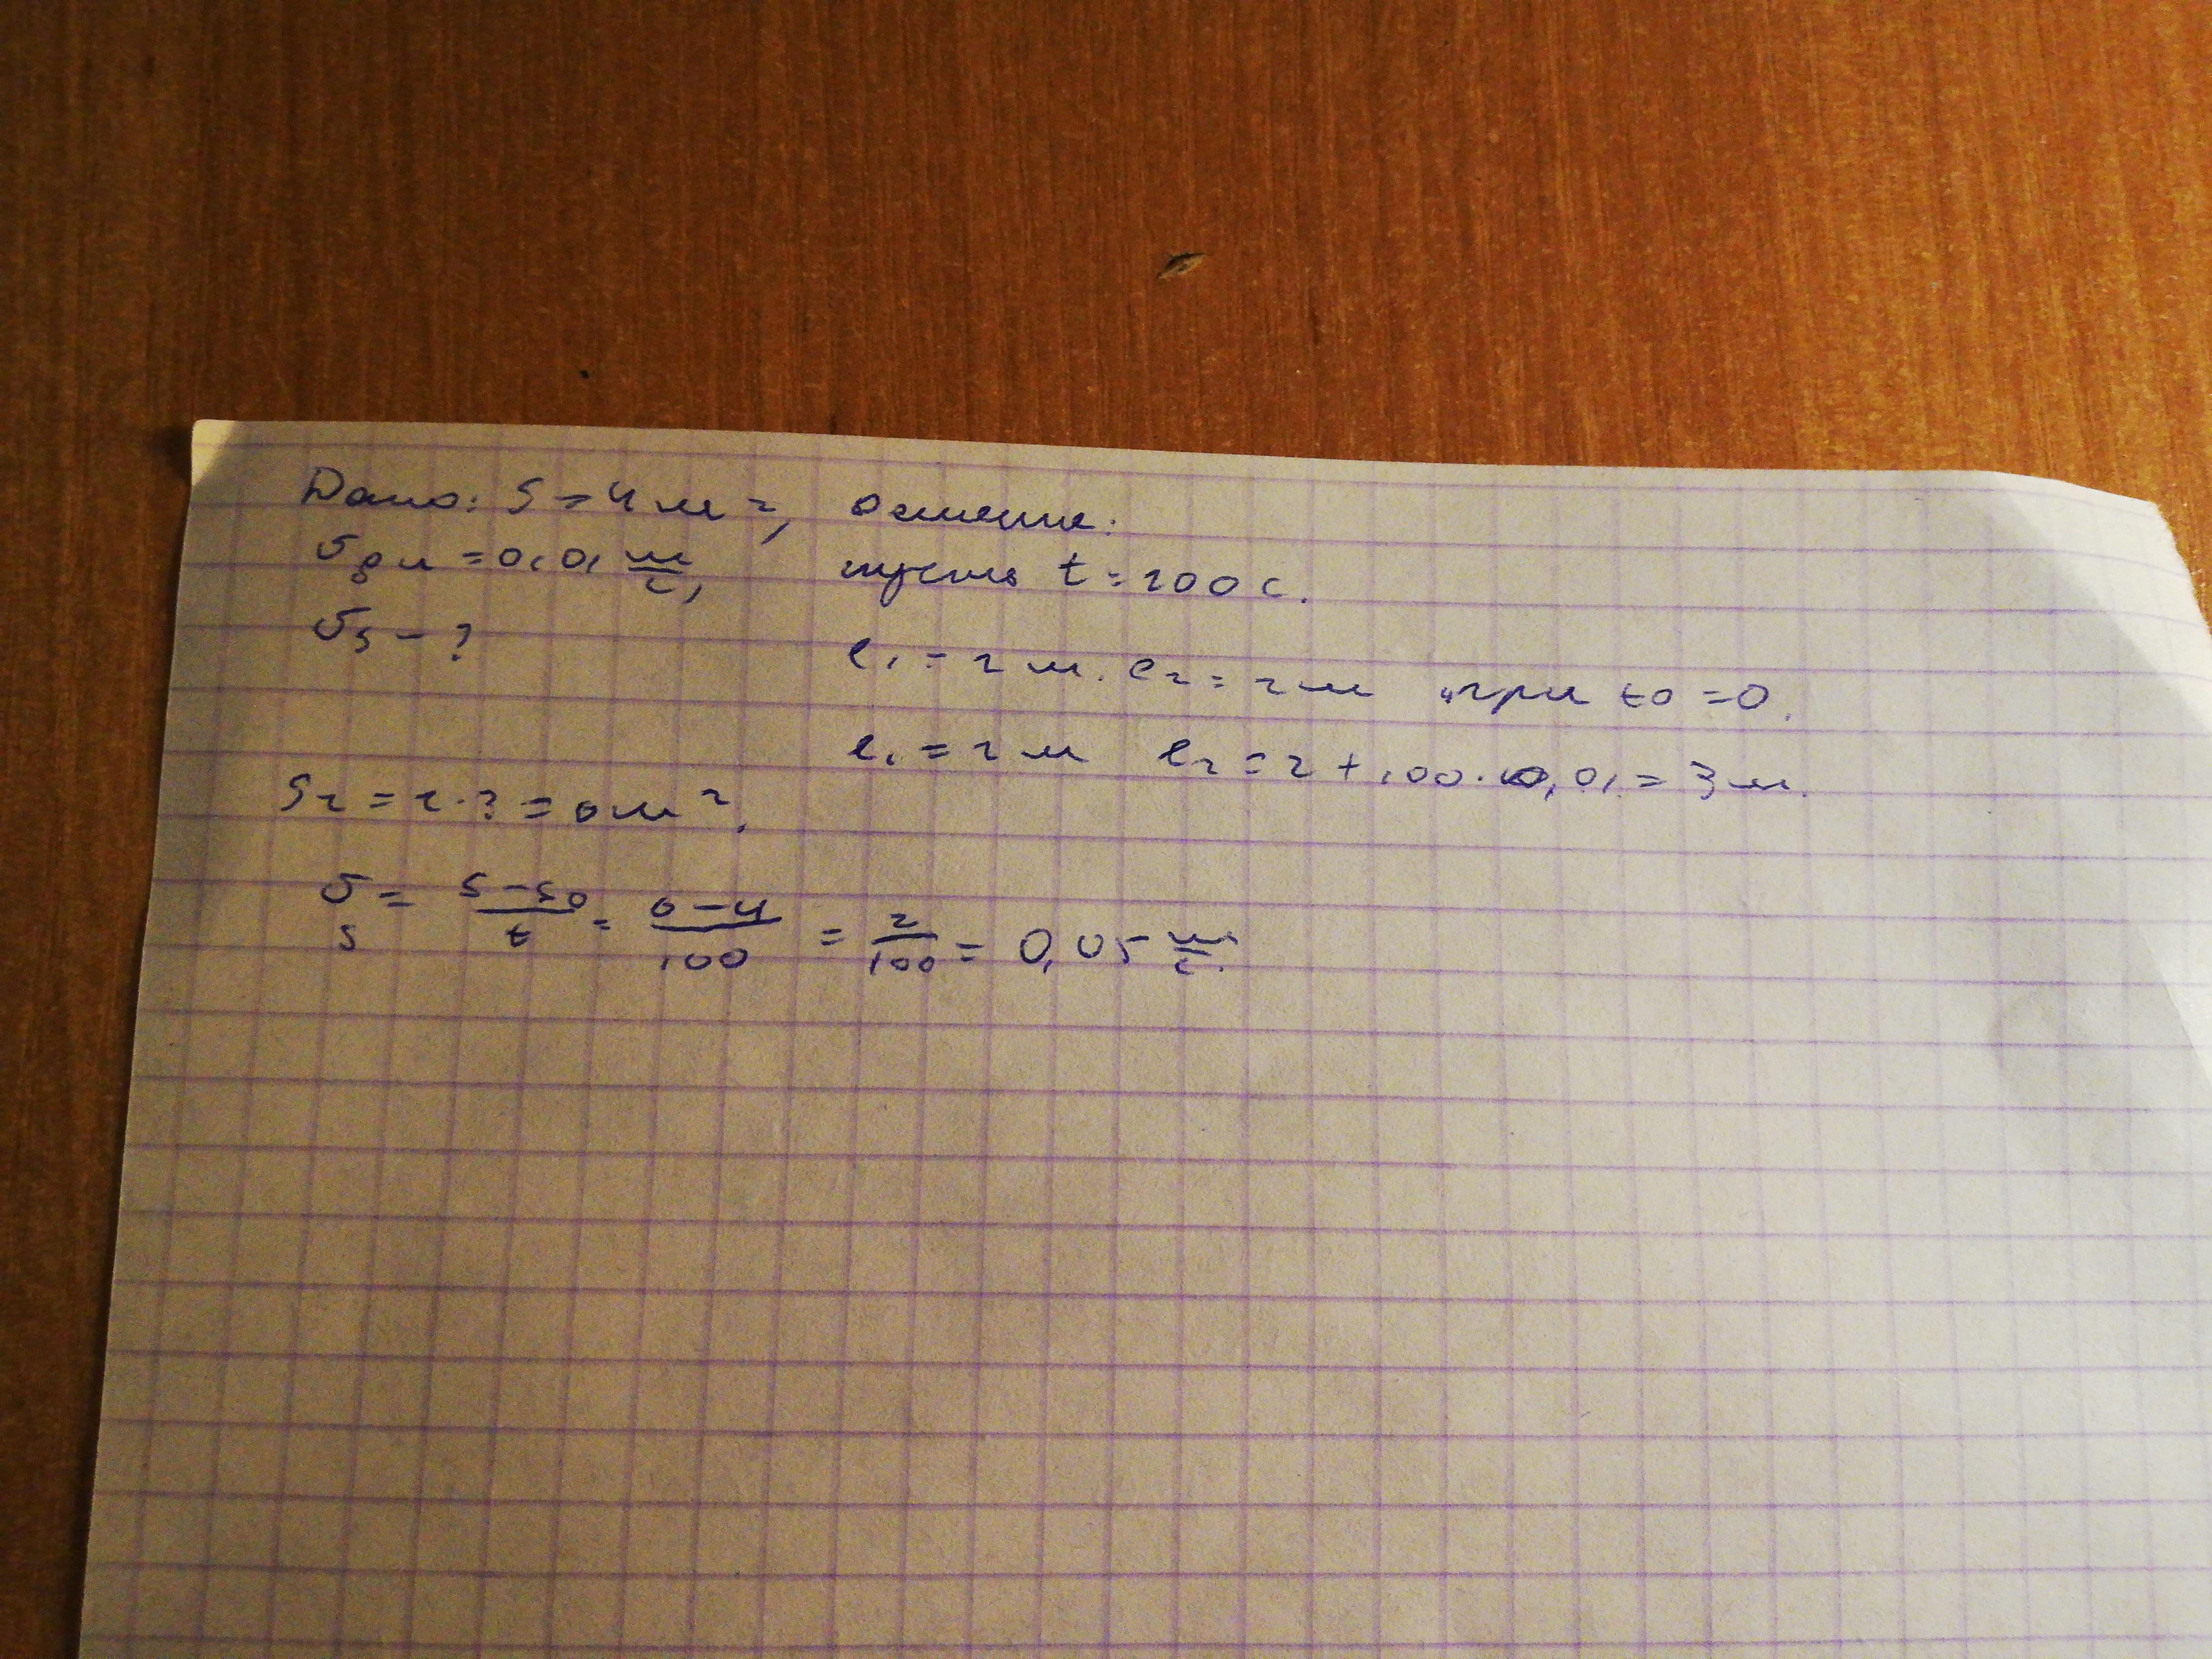 Дано: S = 4 м²,  Решение:
υ дл = 0,01 м/с,  пусть t = 100 с.
υs - ?  l₁ = 2 м. l₂ = 2 м при t0 = 0.
l₁ = 2 м  l₂ = 2 + 100 · 0,01 = 3 м.
S₂ = 2 · 3 = 6 м².
υs = (S - S0)/t = (6 - 4)/100 = 2/100 = 0,05 м/с.